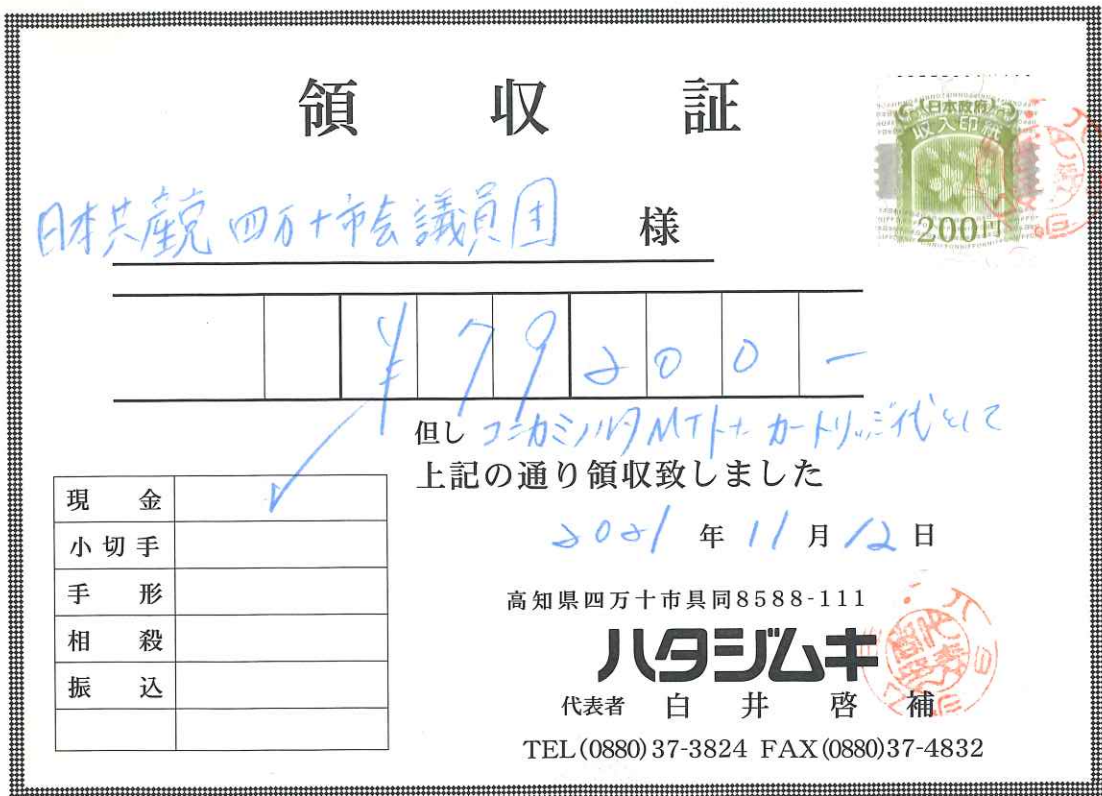 領収証
日本政府
収入印紙
200円
日本共産党 四万十市会議員団 様
¥79200-
但し コニカミノルタMTトナーカートリッジ代として
上記の通り領収致しました
現金
小切手
手形
相殺
振込
2021年11月12日
高知県四万十市具同8588-111
ハタジムキ
代表者 白井啓補
TEL(0880)37-3824 FAX(0880)37-4832